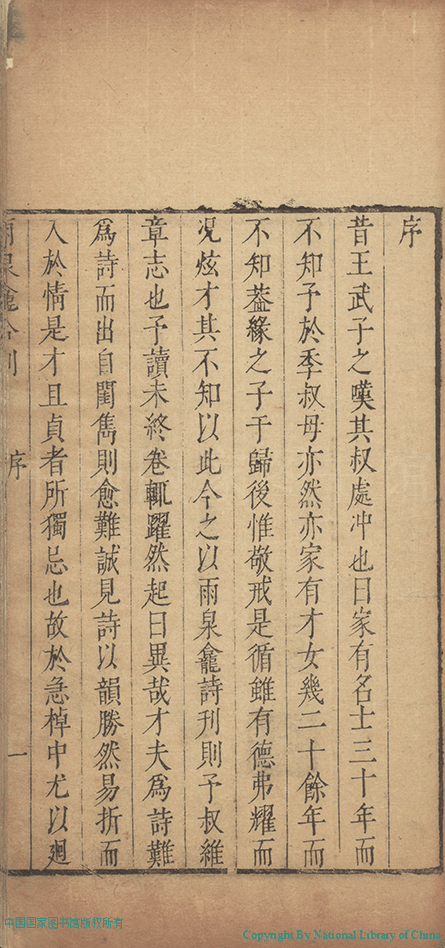 序
昔王武子之嘆其叔處冲也曰家有名士三十年而
不知予於季叔母亦然亦家有才女幾二十餘年而
不知葢緣之子于歸後惟敬戒是循雖有德弗耀而
况炫才其不知以此今之以雨泉龕詩刊則予叔維
章志也予讀未終卷輒躍然起曰異哉才夫爲詩難
爲詩而出自閨雋則愈難誠見詩以韻勝然易折而
入於情是才且貞者所獨忌也故於急棹中尤以廻
泉龕合刊 序 一
中国国家图书馆版权所有
Copyright By National Library of China